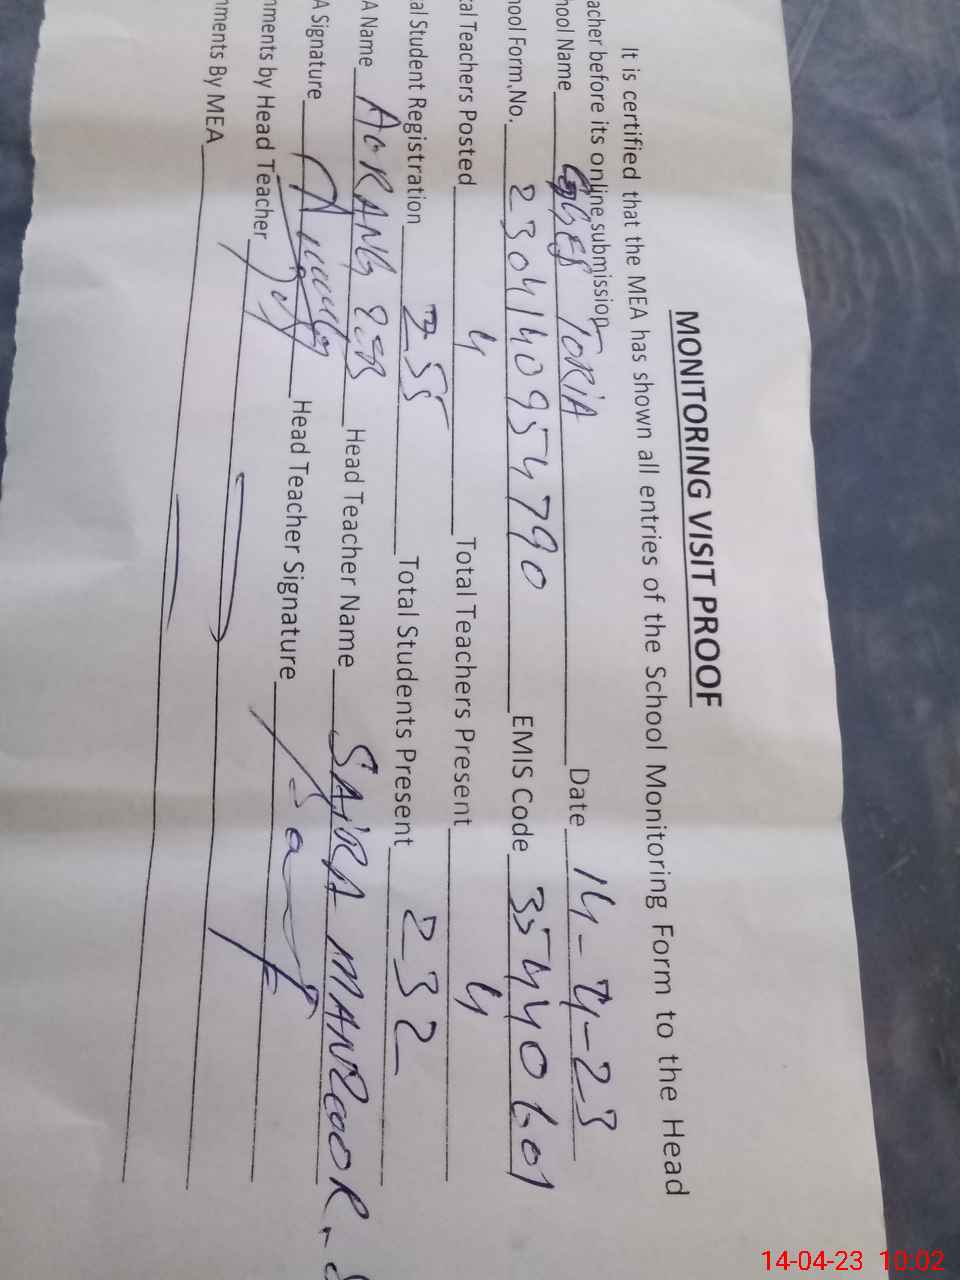 MONITORING VISIT PROOF
It is certified that the MEA has shown all entries of the School Monitoring Form to the Head
acher before its online submission
hool Name GGES TORIA Date 14-4-23
hool Form.No. 2304140954790 EMIS Code 35440601
tal Teachers Posted 4 Total Teachers Present 4
al Student Registration 255 Total Students Present 232
A Name AORANG ZEB Head Teacher Name SAIRA MANZOOR
A Signature Head Teacher Signature
nments by Head Teacher
nments By MEA
14-04-23 10:02